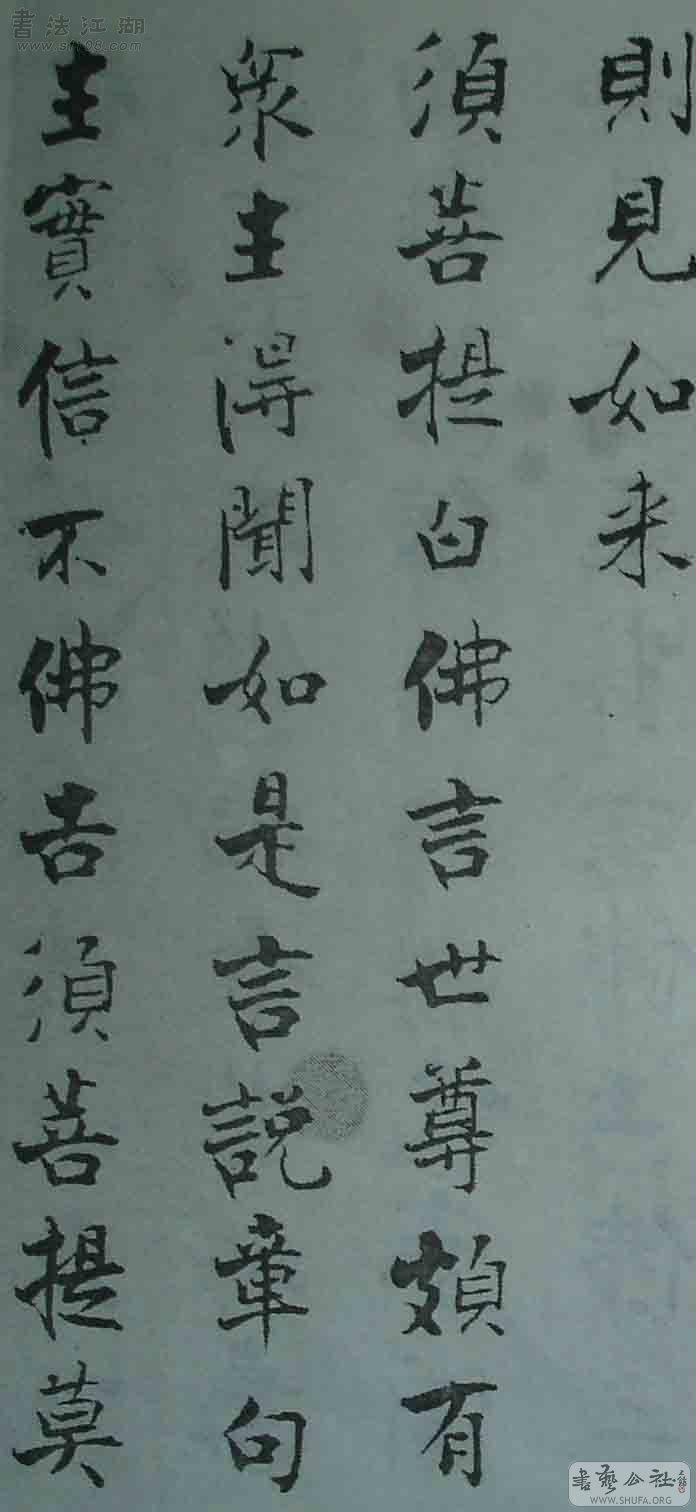 則見如来
須菩提白佛言世尊頗有
衆生得聞如是言說章句
生實信不佛告須菩提莫
書法江湖
www.sf108.com
書藝公社
WWW.SHUFA.ORG